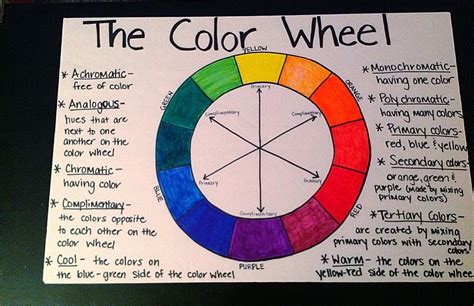 The Color Wheel
* Achromatic-
free of color
* Analogous-
hues that are
next to one
another on the
color wheel
* Chromatic-
having color
* Complimentary-
the colors opposite
to each other on the
color wheel
* Cool - the colors on
the blue-green side of the color wheel
YELLOW
ORANGE
RED
PURPLE
BLUE
GREEN
Primary
Complimentary
Primary
Complimentary
Primary
Complimentary
* Monochromatic-
having one color
* Polychromatic-
having many colors
* Primary colors-
red, blue & yellow
* Secondary colors-
orange, green &
purple (made by mixing
primary colors)
* Tertiary Colors-
are created by mixing
primary colors with secondary
colors
* Warm- the colors on the
yellow-red side of the color wheel